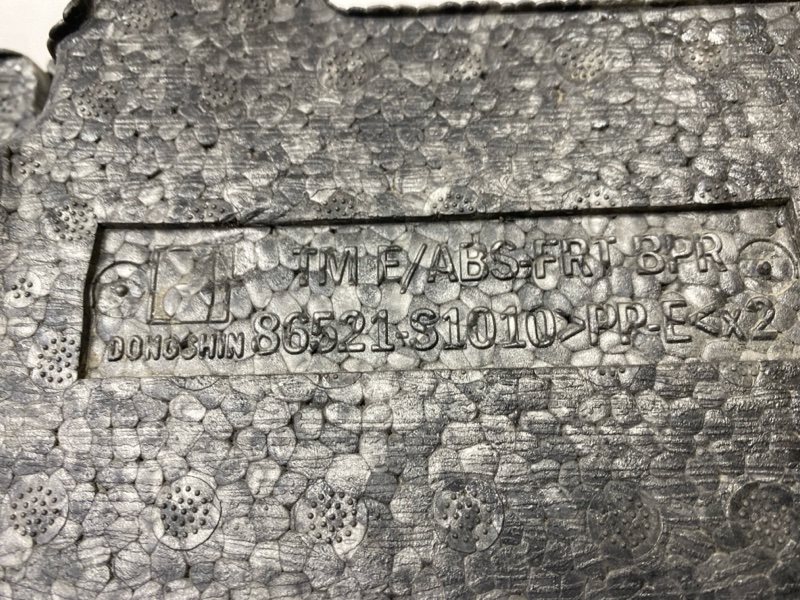 TM E/ABS-FRT BPR
DONGSHIN 86521-S1010>PP-E<x2